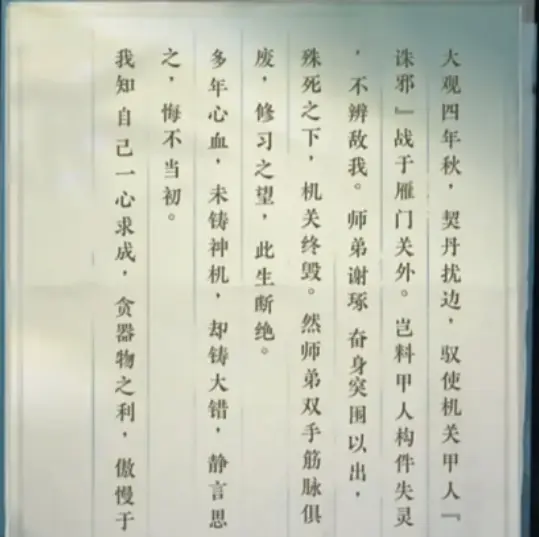 大观四年秋，契丹扰边，驭使机关甲人『
诛邪』战于雁门关外。岂料甲人构件失灵
，不辨敌我。师弟谢琢 奋身突围以出，
殊死之下，机关终毁。然师弟双手筋脉俱
废，修习之望，此生断绝。
多年心血，未铸神机，却铸大错，静言思
之，悔不当初。
我知自己一心求成，贪器物之利，傲慢于